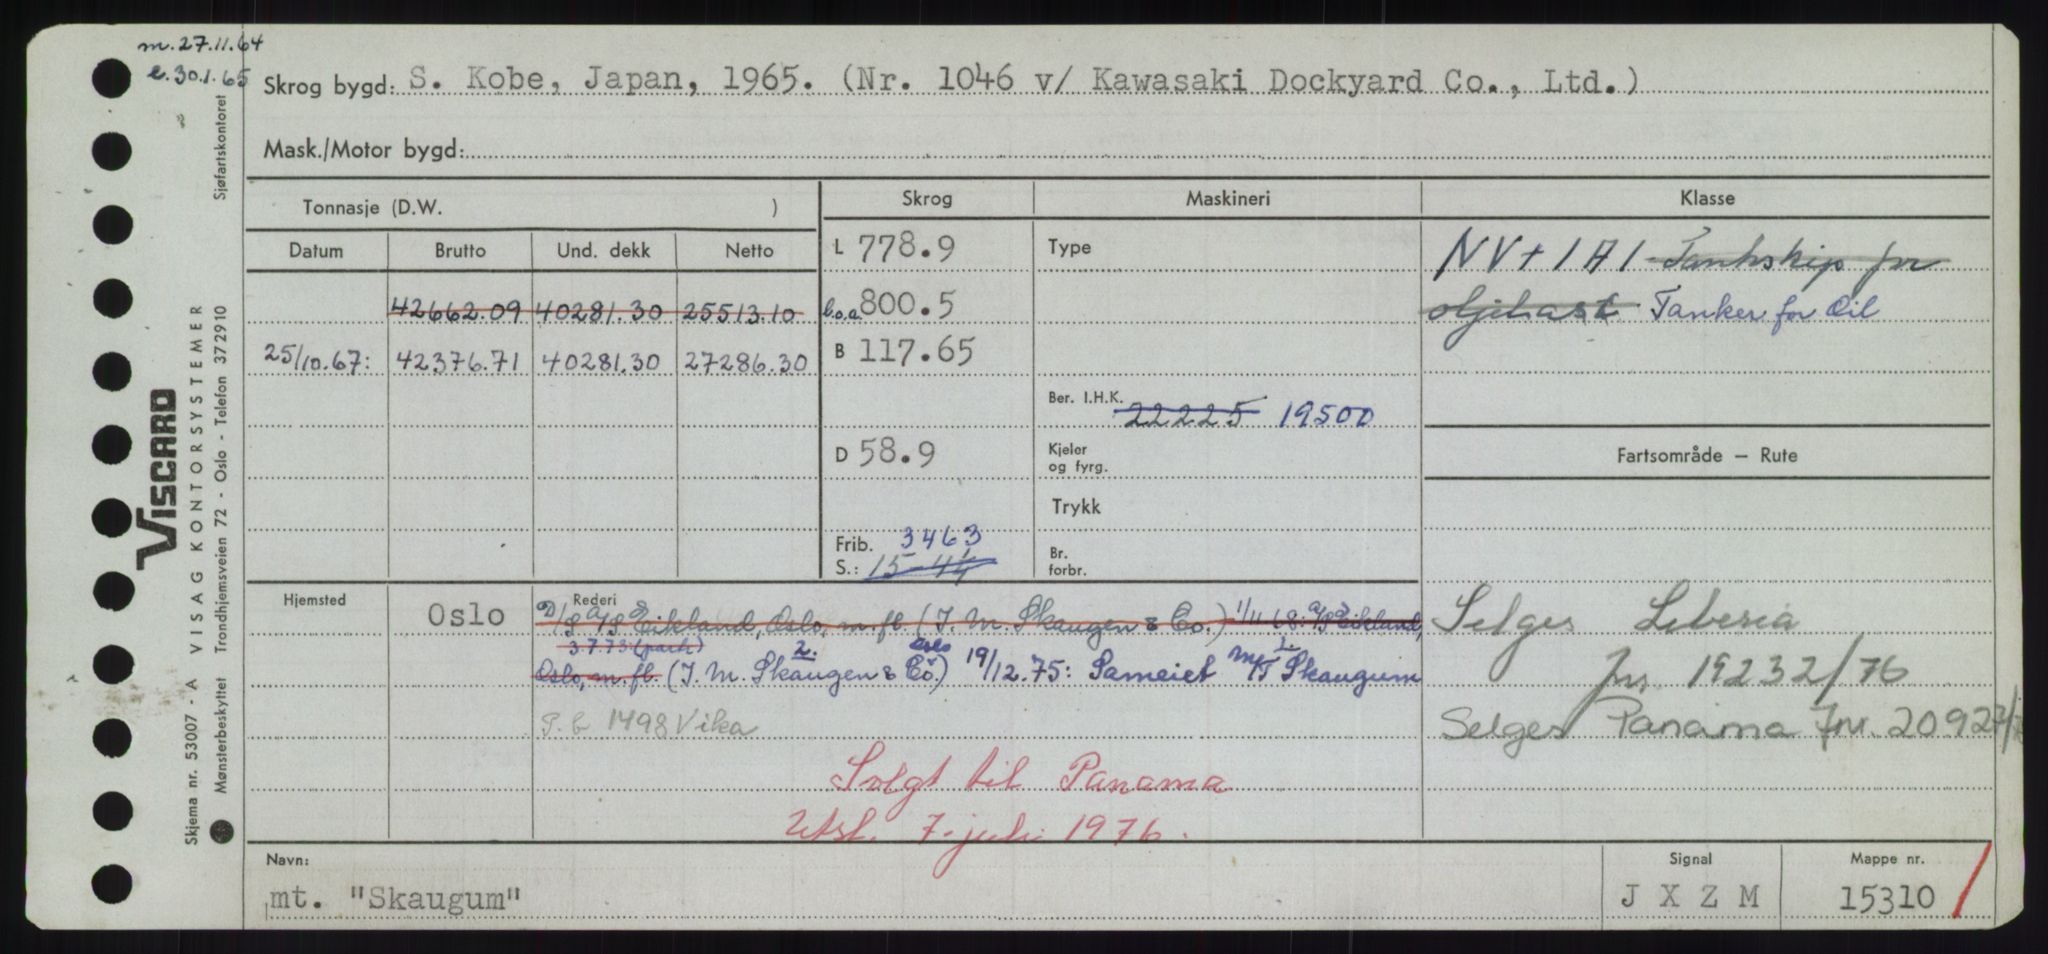 m. 27.11.64
e. 30.1.65
Skrog bygd: S. Kobe, Japan, 1965. (Nr. 1046 v/ Kawasaki Dockyard Co., Ltd.)
Mask./Motor bygd:
Tonnasje (D.W. ) Skrog Maskineri Klasse
Datum Brutto Und. dekk Netto L 778.9 Type NV + 1A1 Tankship for
42662.09 40281.30 25513.10 b.o.a 800.5 oljelast Tanker for Oil
25/10.67: 42376.71 40281.30 27286.30 B 117.65
Ber. I.H.K. 22225 19500
D 58.9 Kjeler og fyrg. Fartsområde — Rute
Trykk
Frib. 3463 Br. forbr.
S.: 15-4¼
Hjemsted Oslo Rederi
D/S A/S Eikland, Oslo, m.fl. (I. M. Skaugen & Co.) 1/11 68: A/S Eikland, Selges Liberia
3.7.73: (part) 2.
Oslo, m.fl. (I. M. Skaugen & Co.) 19/12.75: Sameiet M/T Skaugum Jnr. 19232/76
P.b 1498 Vika Selges Panama Jnr. 20927/76
Solgt til Panama
Utsl. 7. juli 1976.
Navn: Signal Mappe nr.
mt. "Skaugum" J X Z M 15310
VISCARD
VISAG KONTORSYSTEMER
Skjema nr. 53007 - A
Mønsterbeskyttet Trondhjemsveien 72 - Oslo - Telefon 372910
Sjøfartskontoret